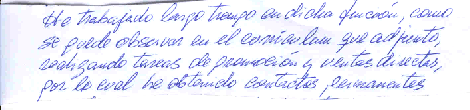 He trabajado largo tiempo en dicha función, como
se puede observar en el curriculum que adjunto,
realizando tareas de promoción y ventas directas,
por lo cual he obtenido contratos permanentes